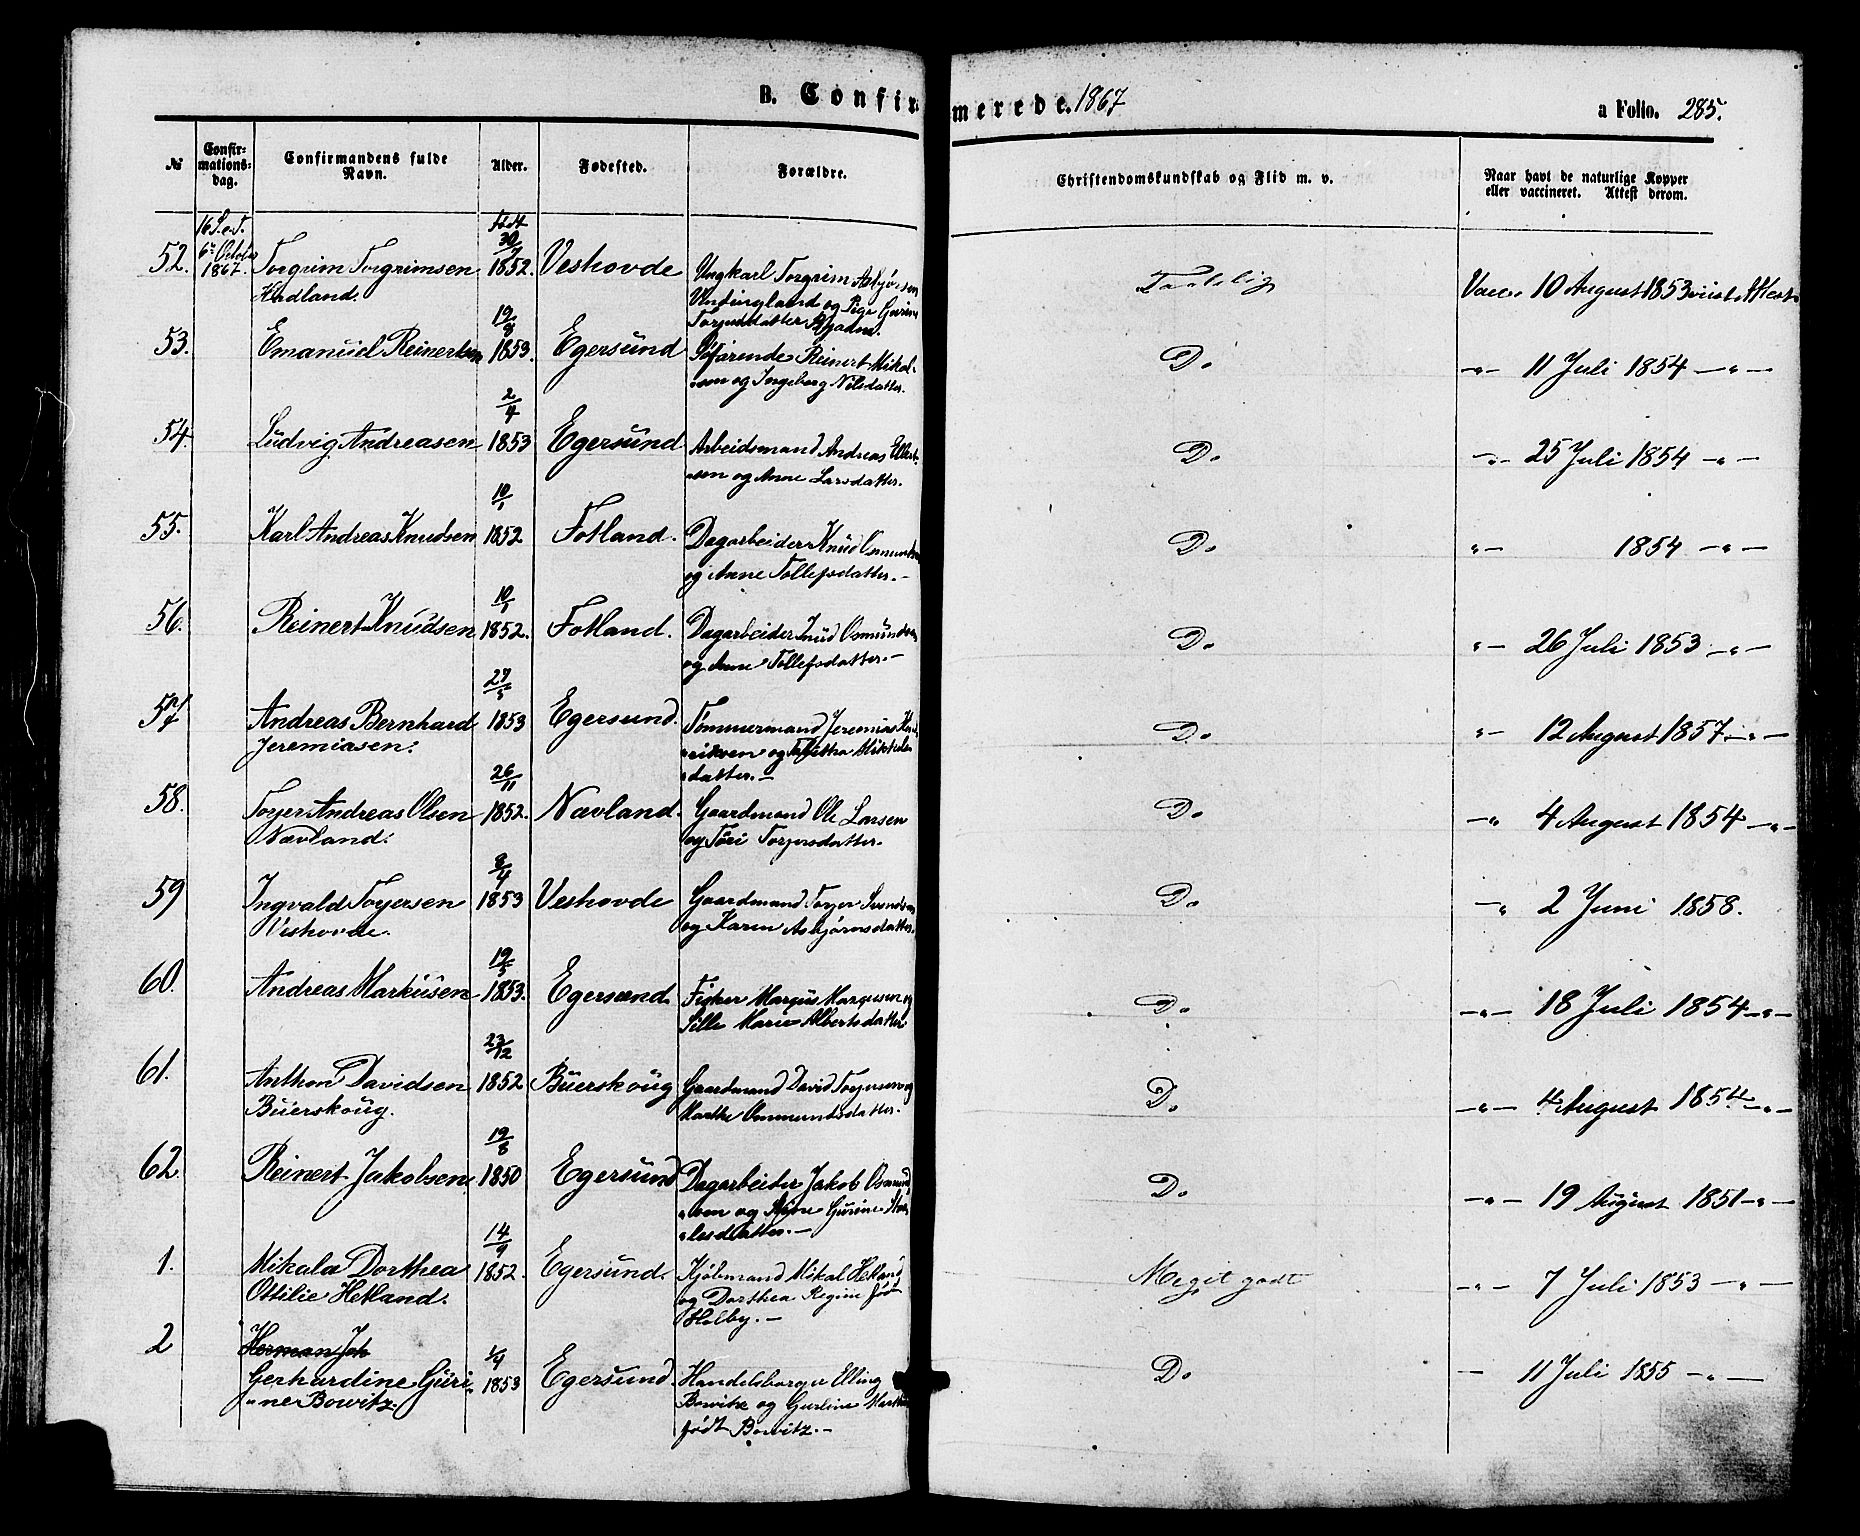 B. Confirmerede. 1867
a Folio. 285.
№ Confirmationsdag. Confirmandens fulde Navn. Alder. Fødested. Forældre. Christendomskundskab og Flid m. v. Naar havt de naturlige Kopper eller vaccineret. Attest derom.
16 S. e. T. født
6te October 30/7
52. 1867. Torgrim Torgrimsen 1852. Veshovde Ungkarl Torgrim Asbjørnsen Taalelig Vacc. 10 August 1853 viist Attest
Hadland. og Pige
Torjersdatter
19/8
53. Emanuel Reinertsen 1853. Egersund Søfarende Reinert Mikal- Do — " — 11 Juli 1854 — " —
sen og Ingeborg Nilsdatter.
2/4
54. Ludvig Andreasen 1853 Egersund Arbeidsmand Andreas Ellert- Do — " — 25 Juli 1854 — " —
sen og Anne Larsdatter.
10/1
55. Karl Andreas Knudsen 1852 Fotland. Dagarbeider Knud Osmundsen Do " — 1854 — " —
og Anne Tollefsdatter. —
10/1
56. Reinert Knudsen 1852. Fotland. Dagarbeider Knud Osmundsen Do " — 26 Juli 1853 — " —
og Anne Tollefsdatter. —
27/5
57 Andreas Bernhard 1853 Egersund. Tømmermand Jeremias Do " — 12 August 1857 — " —
Jeremiasen. og Tabitha Mikkels
datter. —
26/11
58. Torjer Andreas Olsen 1852. Nævland. Gaardmand Ole Larsen Do — " 4 August 1854 — " —
Nævland. og Tøri Torjersdatter.
8/4
59 Ingvald Torjersen 1853 Veshovde Gaardmand Torjer Svendsen Do — " 2 Juni 1858.
Veshovde. og Karen Asbjørnsdatter.
19/5
60. Andreas Markusen 1853. Egersund. Fisker Margus Margusen og Do — " — 18 Juli 1854 — " —
Sille Marie Albertsdatter
23/12
61. Anthon Davidsen 1852 Buerskoug Gaardmand David Torjersen og Do — " — 4 August 1854 — " —
Buerskoug. Marthe Ommundsdatter.
19/8
62. Reinert Jakobsen 1850 Egersund Dagarbeider Jakob Osmund- Do — " — 19 August 1851 — " —
sen og Gurine
datter. —
14/9
1. Mikala Dorthea 1852. Egersund. Kjøbmand Mikal Hetland Meget godt — " — 7 Juli 1853 — " —
Ottilie Hetland. og Dorthea Regine født
Holby. —
2 Herman Joh
1/4
Gerhardine Guri- 1853 Egersund. Handelsborger Elling Do — 11 Juli 1855 — " —
ne Bowitz. Bowitz og
født Bowitz. —